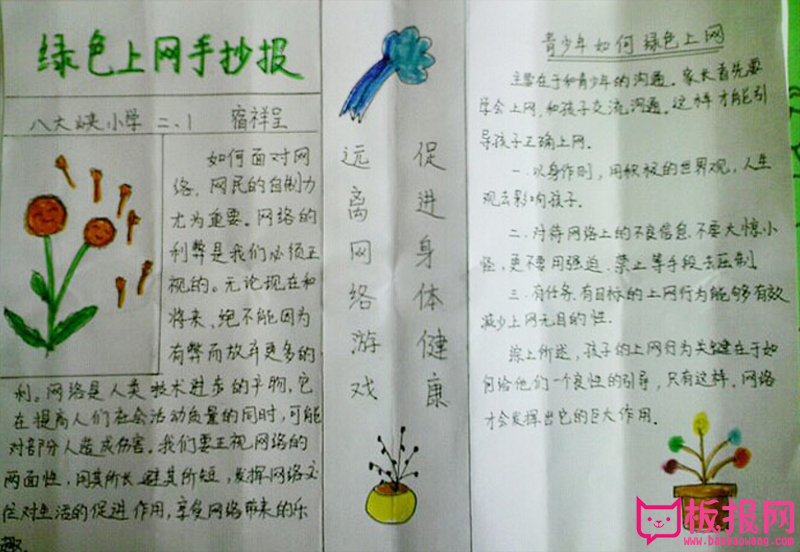 绿色上网手抄报
八大峡小学 二、1 宿祥呈
如何面对网
络，网民的自制力
尤为重要。网络的
利弊是我们必须正
视的。无论现在和
将来，绝不能因为
有弊而放弃更多的
利。网络是人类技术进步的产物，它
在提高人们社会活动质量的同时，可能
对部分人造成伤害。我们要正视网络的
两面性，用其所长，避其所短，发挥网络交
往对生活的促进作用，享受网络带来的乐
趣。
远离网络游戏
促进身体健康
青少年如何绿色上网
主要在于和青少年的沟通。家长首先要
学会上网，和孩子交流沟通。这样才能引
导孩子正确上网。
一.以身作则，用积极的世界观，人生
观去影响孩子.
二.对待网络上的不良信息.不要大惊小
怪，更不要用强迫.禁止等手段去压制
三.有任务.有目标的上网行为能够有效
减少上网无目的性.
综上所述，孩子的上网行为关键在于如
何给他们一个良性的引导，只有这样.网络
才会发挥出它的巨大作用.
板报网
www.banbaowang.com